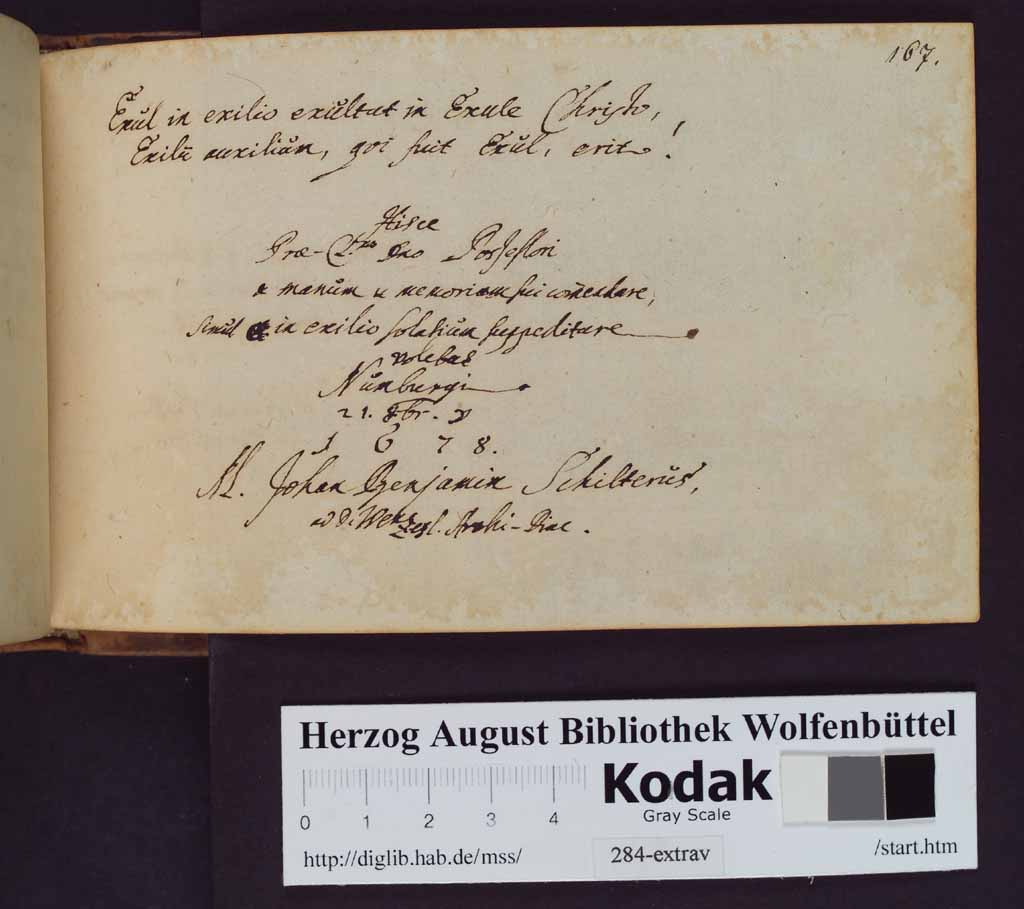 167.
Exul in exilio exultat in Exule Christo,
Exilii auxilium, qvi fuit Exul, erit!
Hisce
Præ-Cl.mo Dno Possessori
& manum & memoriam sui com̄endare,
simul & in exilio solatium suppeditare
volebat
Nŭmburgi
21. 8br.
1678.
M. Johan Benjamin Schilterŭs,
ad d. Wenzesl. Archi-Diac.
Herzog August Bibliothek Wolfenbüttel
Kodak
Gray Scale
0 1 2 3 4
http://diglib.hab.de/mss/
284-extrav
/start.htm